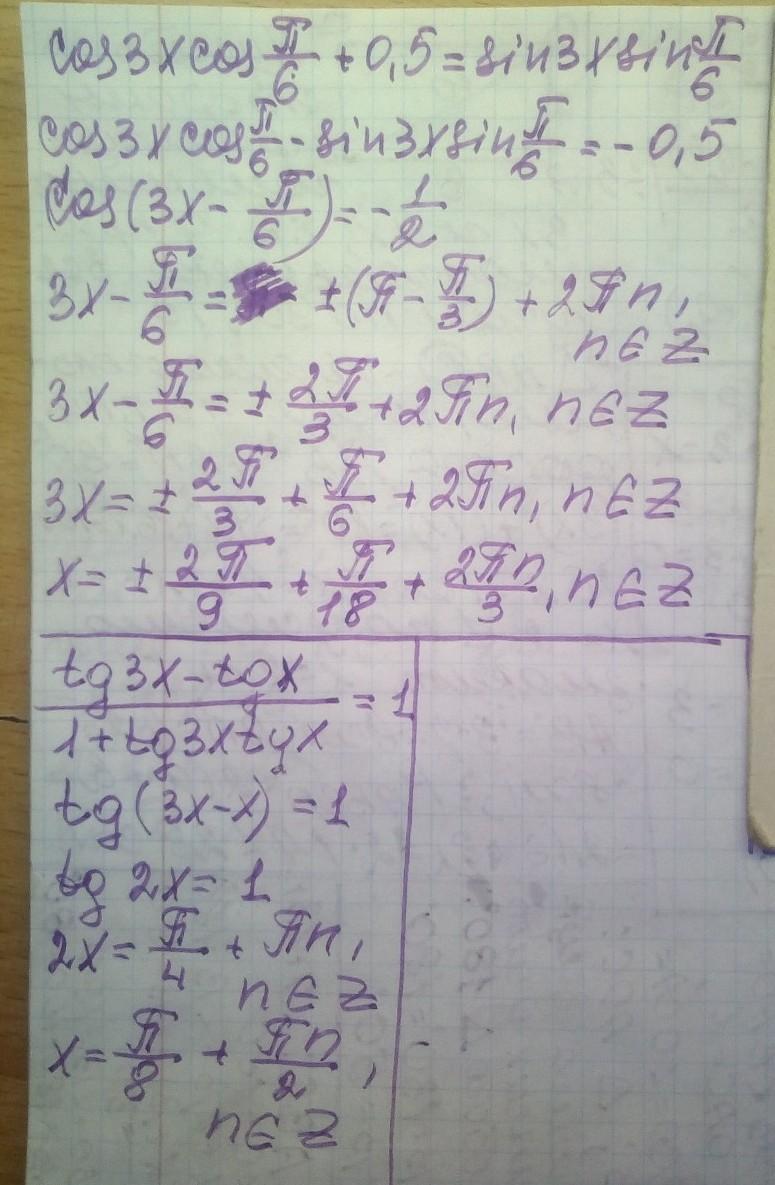 cos3xcos π/6 + 0,5 = sin3xsin π/6
cos3xcos π/6 - sin3xsin π/6 = - 0,5
cos(3x - π/6) = - 1/2
3x - π/6 = ± (π - π/3) + 2πn,
n ∈ Z
3x - π/6 = ± 2π/3 + 2πn, n ∈ Z
3x = ± 2π/3 + π/6 + 2πn, n ∈ Z
x = ± 2π/9 + π/18 + 2πn/3, n ∈ Z
tg3x - tgx / 1 + tg3xtgx = 1
tg(3x - x) = 1
tg 2x = 1
2x = π/4 + πn,
n ∈ Z
x = π/8 + πn/2,
n ∈ Z